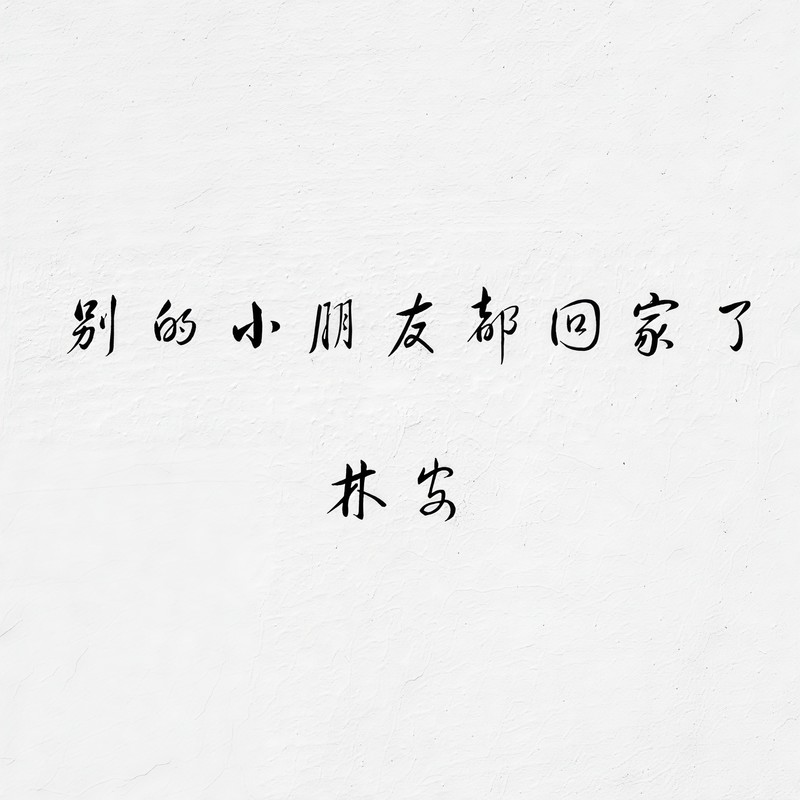 别的小朋友都回家了
林安